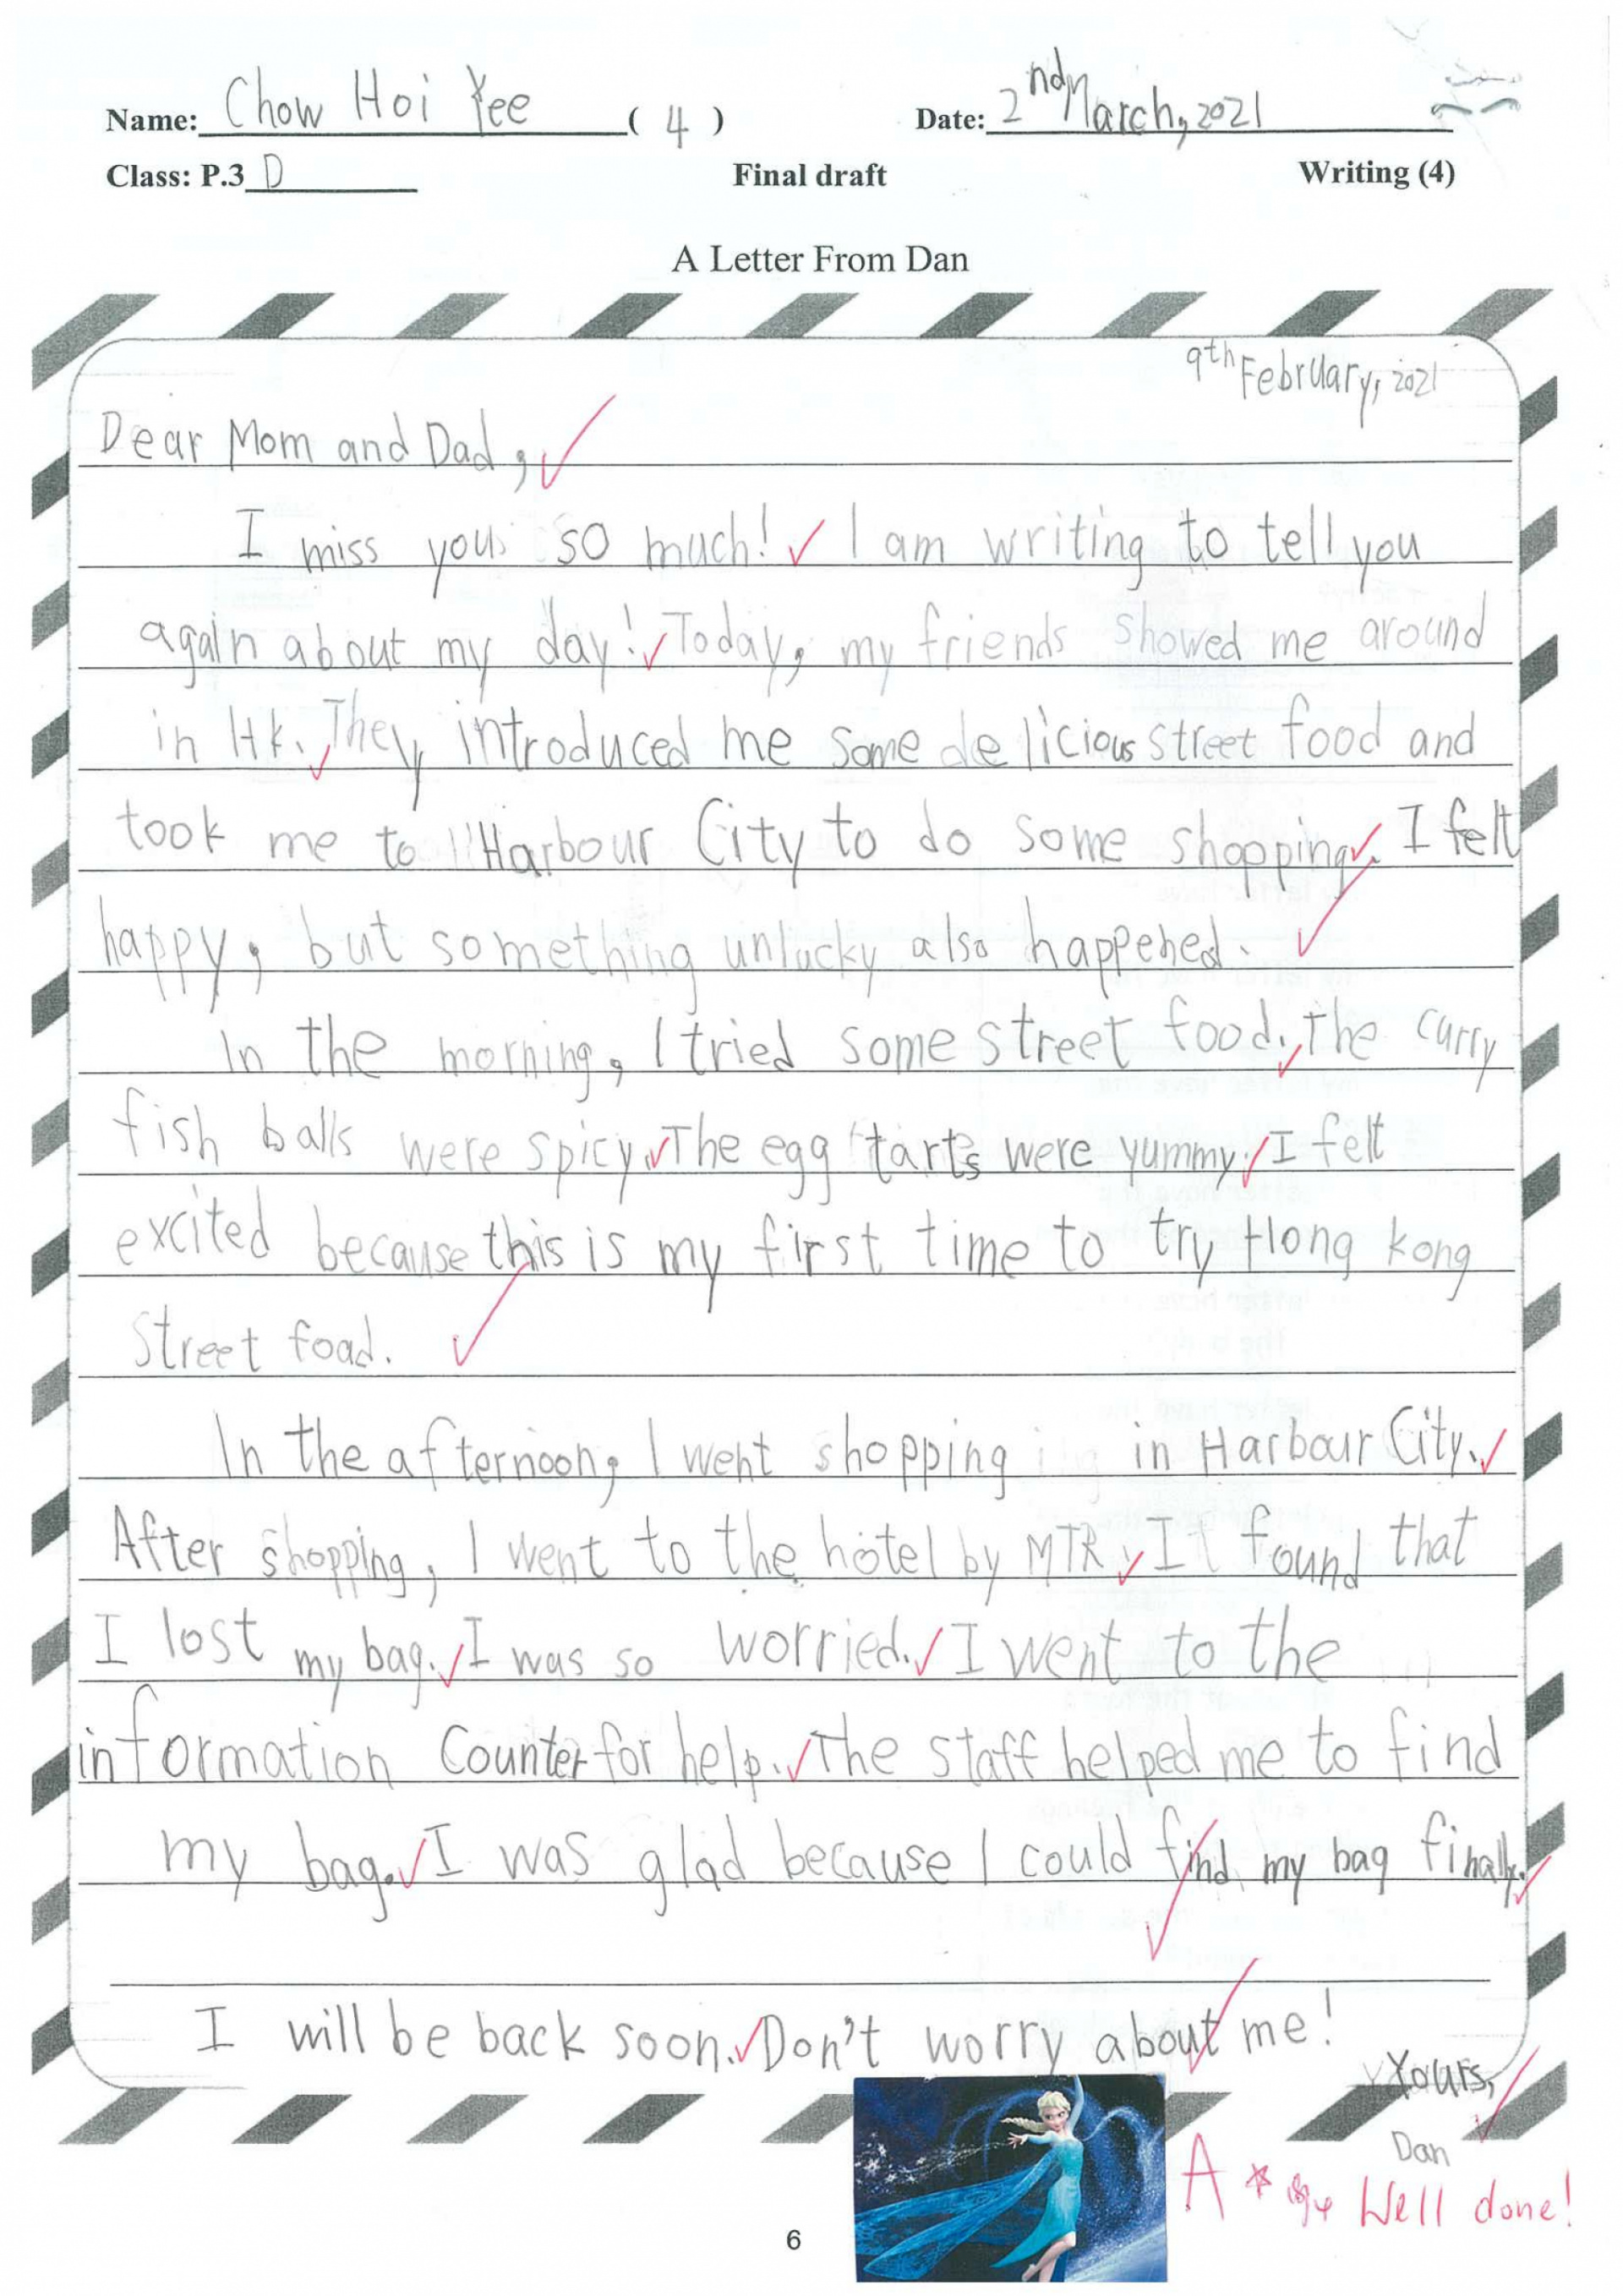 Name: Chow Hoi Yee ( 4 ) Date: 2nd March, 2021
Class: P.3 D Final draft Writing (4)
A Letter From Dan
9th February, 2021
Dear Mom and Dad,
I miss you so much! I am writing to tell you
again about my day! Today, my friends showed me around
in HK. They introduced me some delicious street food and
took me to Harbour City to do some shopping. I felt
happy, but something unlucky also happened.
In the morning, I tried some street food. The curry
fish balls were spicy. The egg tarts were yummy. I felt
excited because this is my first time to try Hong Kong
street food.
In the afternoon, I went shopping in Harbour City.
After shopping, I went to the hotel by MTR. I found that
I lost my bag. I was so worried. I went to the
information Counter for help. The staff helped me to find
my bag. I was glad because I could find my bag finally.
I will be back soon. Don't worry about me!
Yours,
Dan
A* Well done!
6